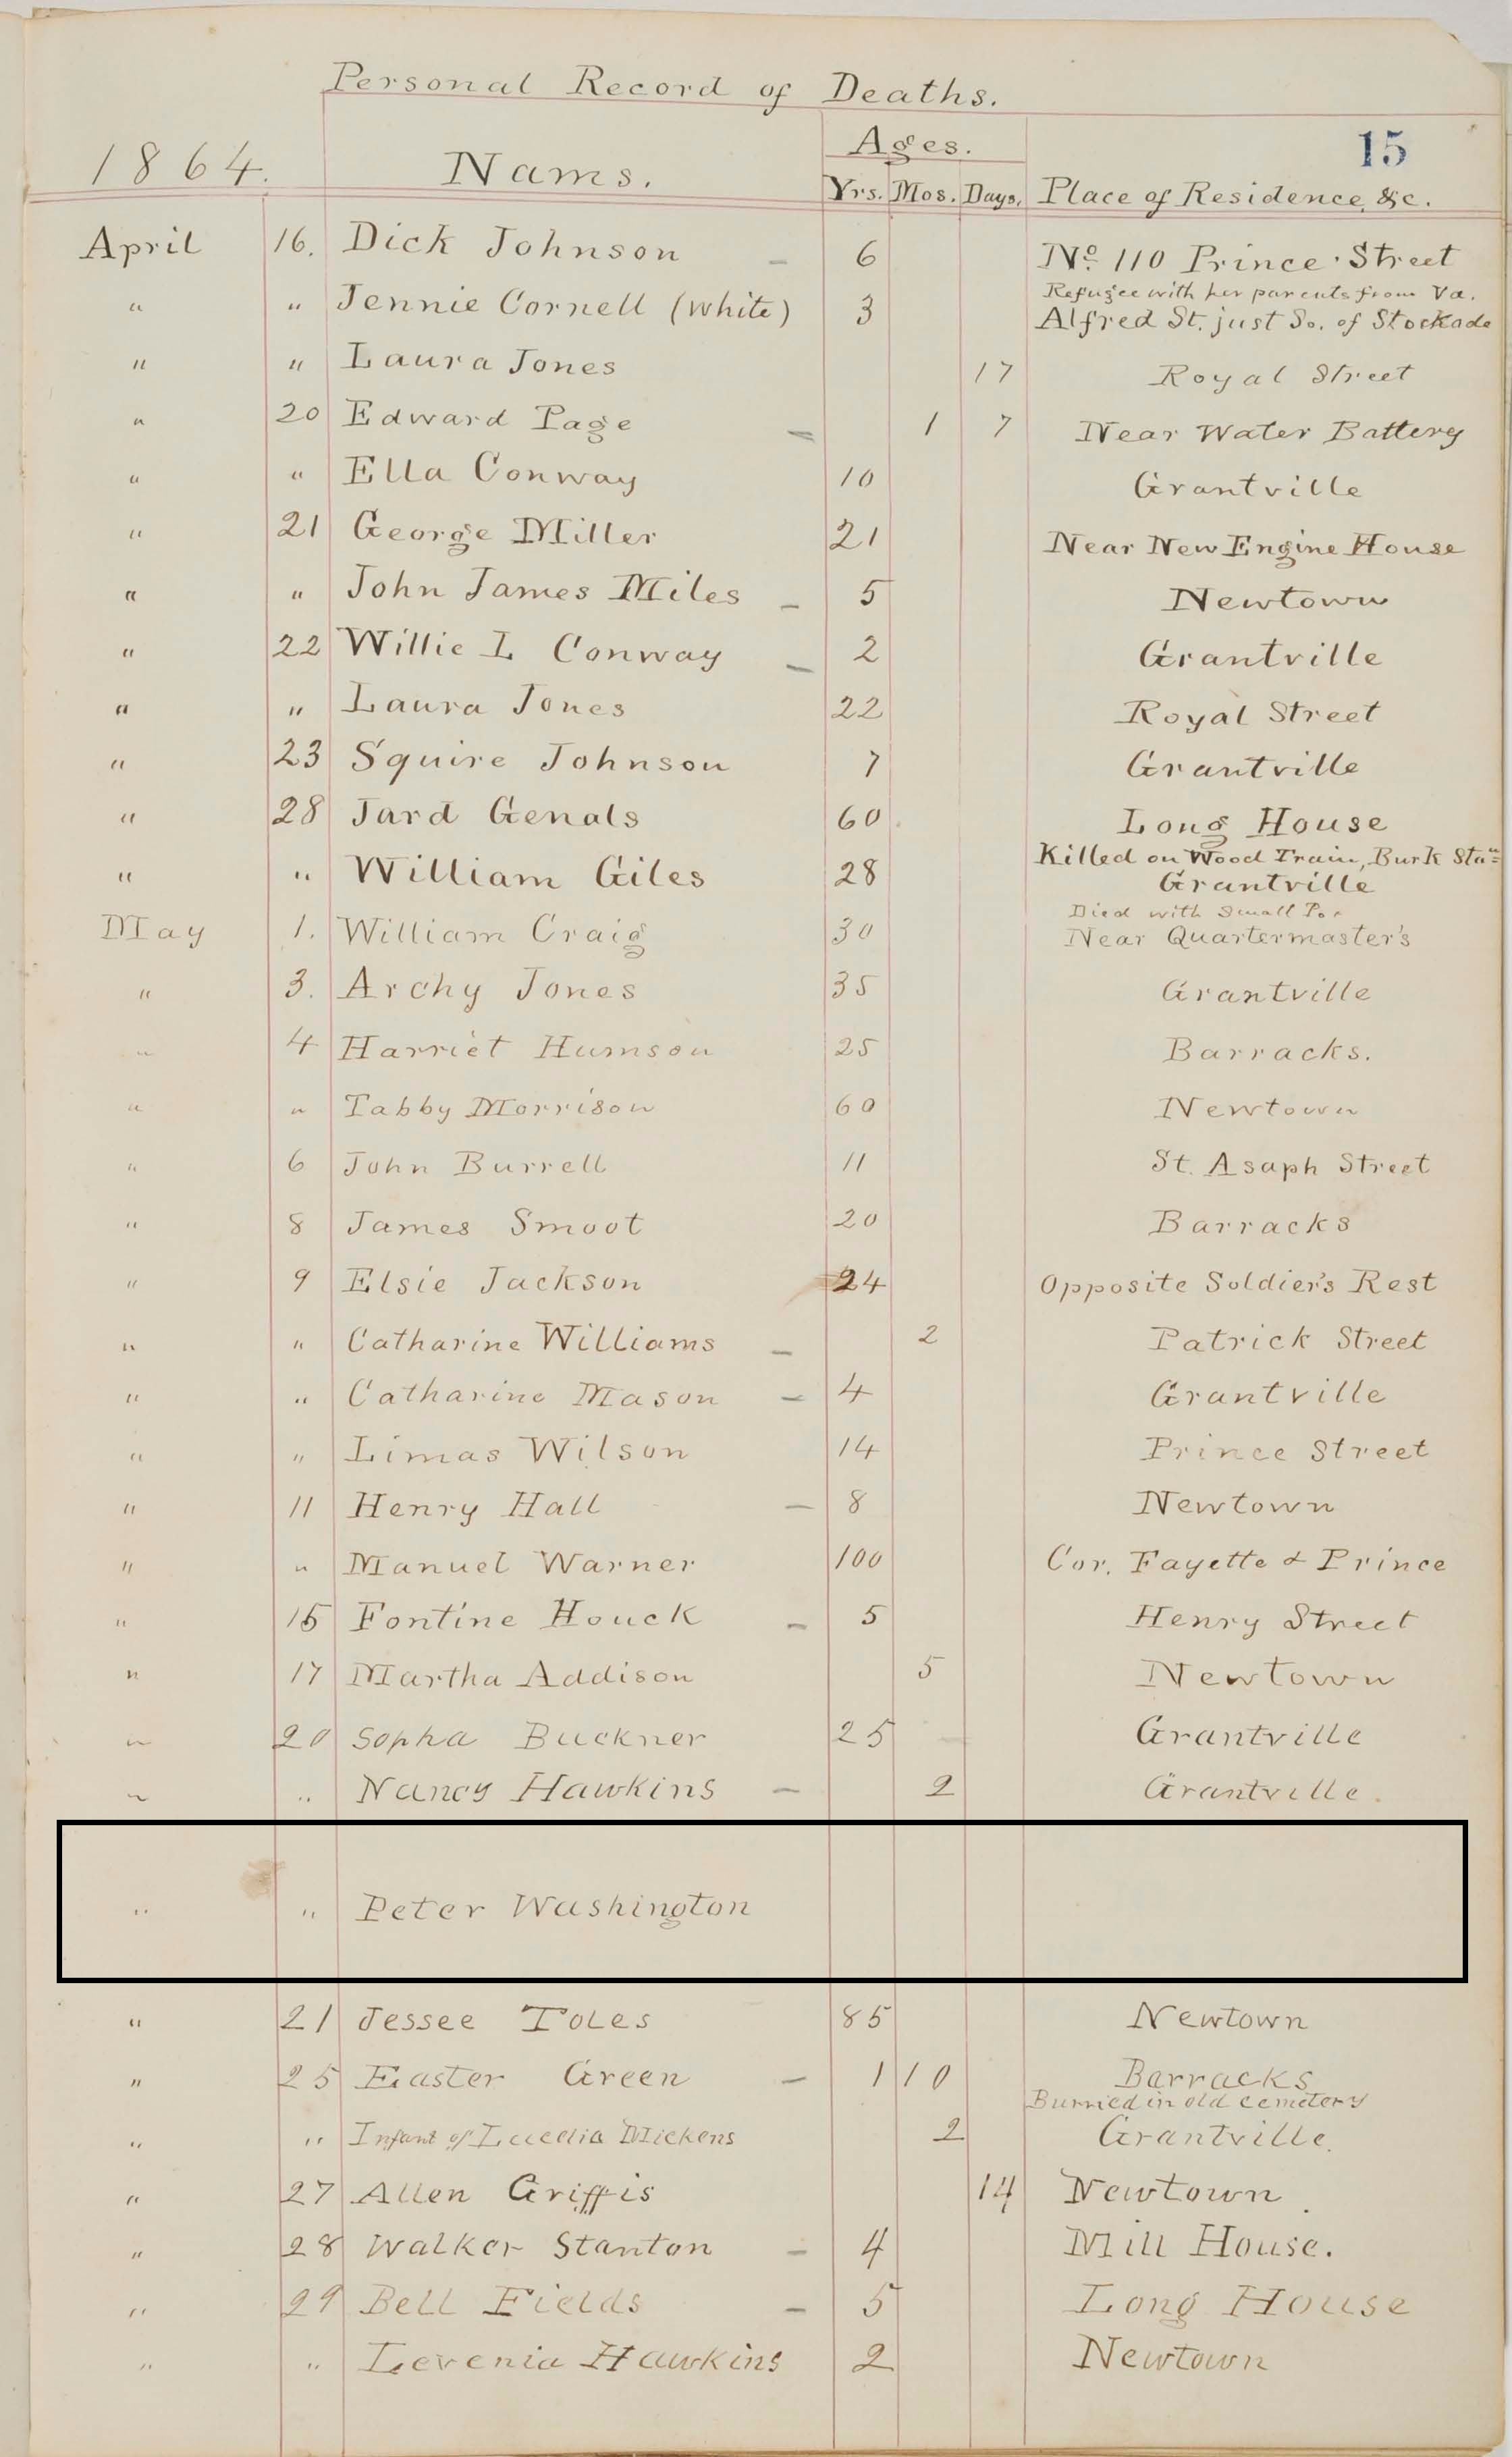 Personal Record of Deaths.
15
1864. Nams. Ages.
Yrs. Mos. Days. Place of Residence, &c.
April 16. Dick Johnson – 6 No. 110 Prince Street
Refugee with her parents from Va.
" " Jennie Cornell (White) 3 Alfred St. just So. of Stockade
" " Laura Jones 17 Royal Street
" 20 Edward Page – 1 7 Near Water Battery
" " Ella Conway 10 Grantville
" 21 George Miller 21 Near New Engine House
" " John James Miles – 5 Newtown
" 22 Willie L Conway – 2 Grantville
" " Laura Jones 22 Royal Street
" 23 Squire Johnson 7 Grantville
" 28 Jard Genals 60 Long House
Killed on Wood Train, Burk Stan
" " William Giles 28 Grantville
Died with Small Pox
May 1. William Craig 30 Near Quartermaster's
" 3. Archy Jones 35 Grantville
" 4 Harriet Humson 25 Barracks.
" " Tabby Morrison 60 Newtown
" 6 John Burrell 11 St. Asaph Street
" 8 James Smoot 20 Barracks
" 9 Elsie Jackson 24 Opposite Soldier's Rest
" " Catharine Williams – 2 Patrick Street
" " Catharine Mason – 4 Grantville
" " Limas Wilson 14 Prince Street
" 11 Henry Hall – 8 Newtown
" " Manuel Warner 100 Cor. Fayette & Prince
" 15 Fontine Houck – 5 Henry Street
" 17 Martha Addison 5 Newtown
" 20 Sopha Buckner 25 Grantville
" " Nancy Hawkins – 2 Grantville.
" " Peter Washington
" 21 Jessee Toles 85 Newtown
" 25 Easter Green – 1 10 Barracks
Burried in old cemetery
" " Infant of Lucelia Dickens 2 Grantville.
" 27 Allen Griffis 14 Newtown
" 28 Walker Stanton – 4 Mill House.
" 29 Bell Fields – 5 Long House
" " Levenia Hawkins 2 Newtown